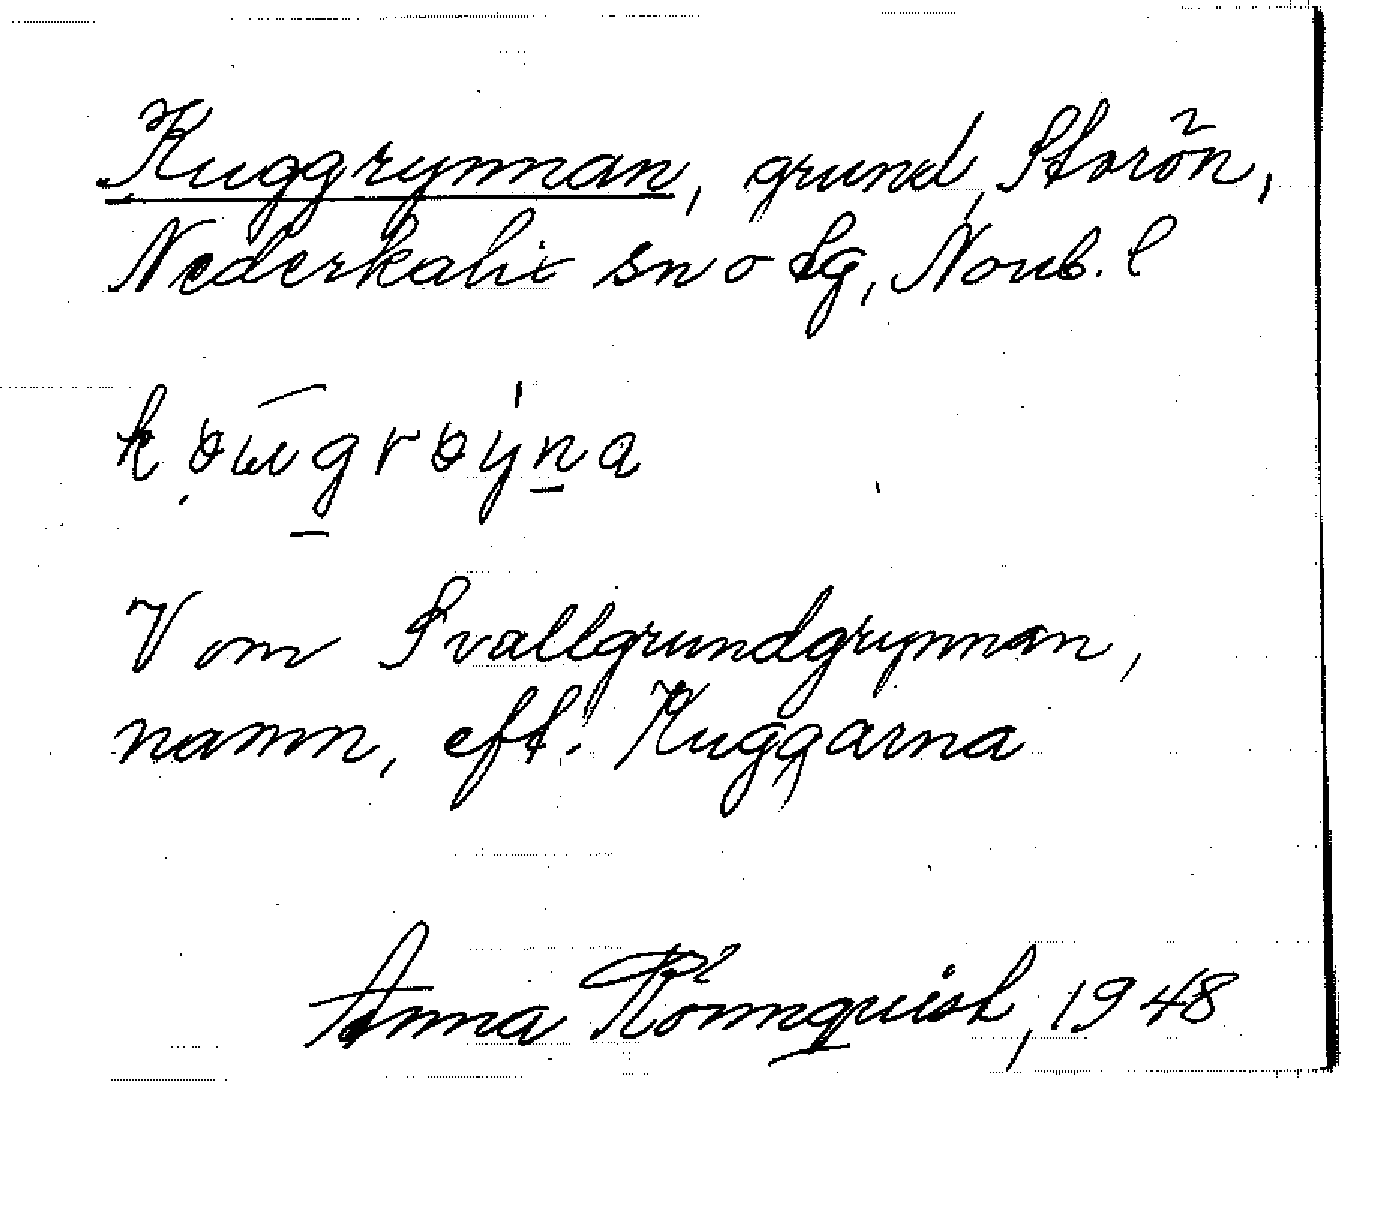 Kuggrynnan, grund, Storön,
Nederkalix sn o hg, Norrb. l
V om Svallgrundgrynnan,
namn, eft. Kuggarna
Anna Rönnquist, 1948